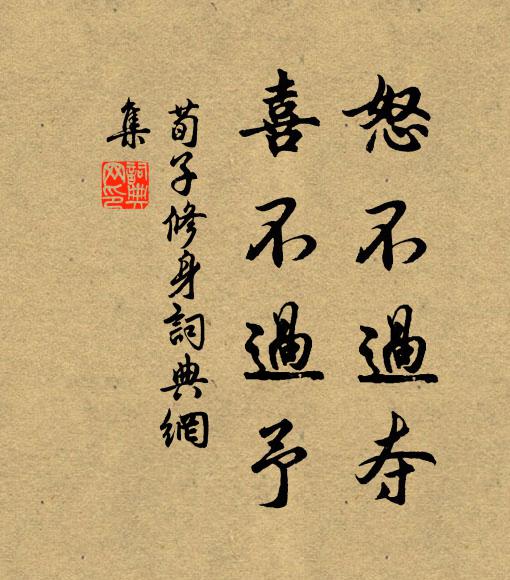 怒不過夺
喜不過予
荀子修身詞典網
集
詞典网印